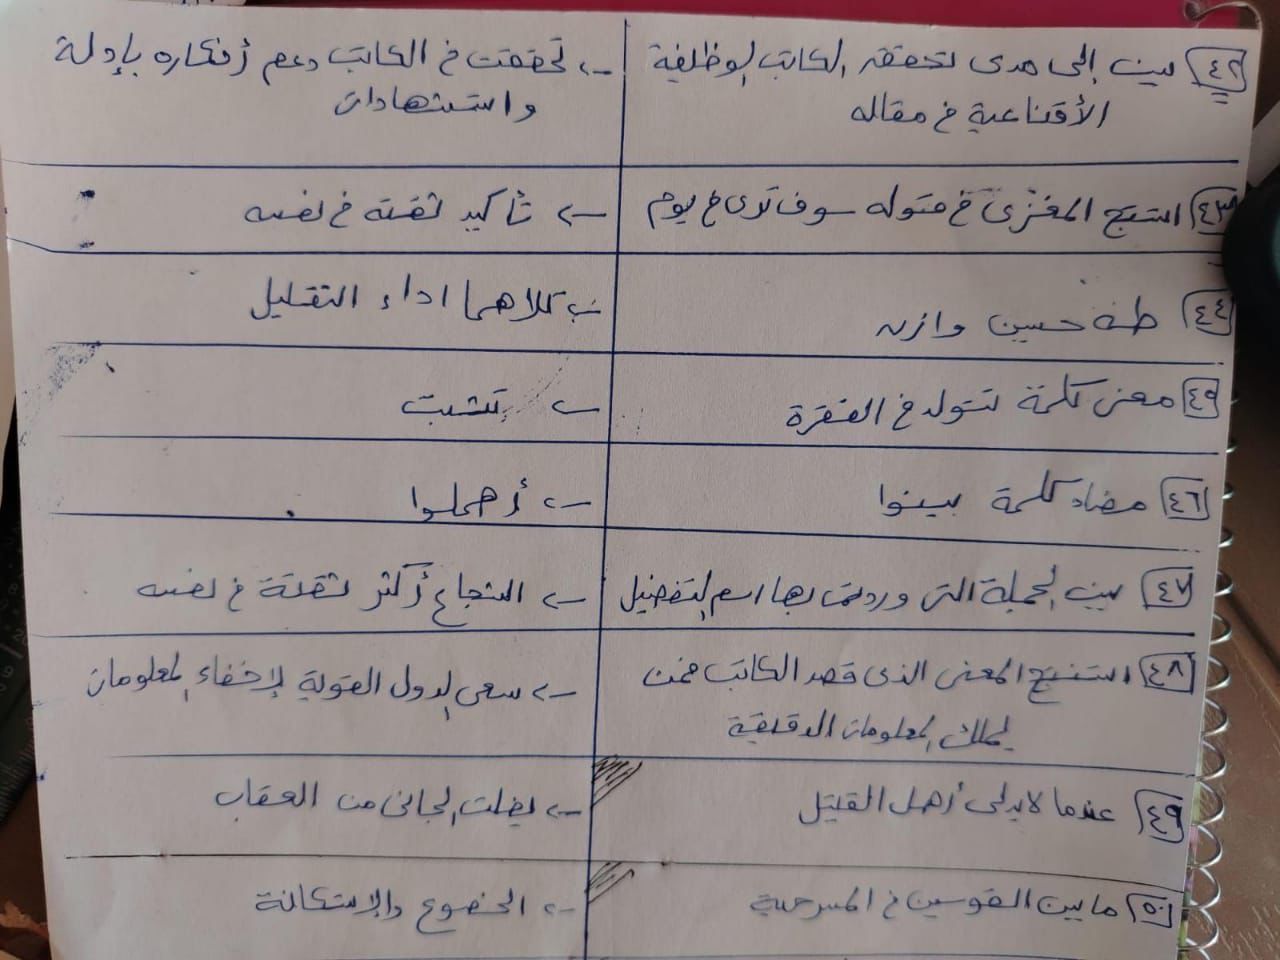 ٤٢ بين إلى مدى تحققه الكاتب الوظيفة
الأقناعية في مقاله
← تحققت في الكاتب دعم أفكاره بإدلة
واستشهادات
٤٣ استنتج المغزى في قوله سوف ترى في يوم
← تأكيد ثقته في نفسه
٤٤ طه حسين وازن
← كلاهما اداء التقليل
٤٥ معنى كلمة تتولد في الفقرة
←
٤٦ مضاد كلمة بينوا
← أهملوا
٤٧ بين الجملة التى وردت بها اسم التفضيل
← الشجاع أكثر ثقتة في نفسه
٤٨ استنتج المعنى الذى قصد الكاتب فمن
يملك المعلومات الدقيقة
← سعى الدول القوية لإخفاء المعلومات
٤٩ عندما لا يدلى أهل القتيل
← يفلت الجانى من العقاب
٥٠ ما بين القوسين في المسرحية
← الخضوع والإستكانة